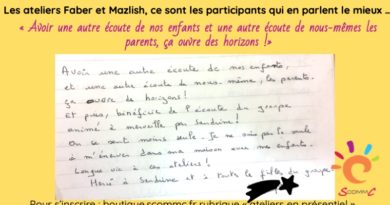 Les ateliers Faber et Mazlish, ce sont les participants qui en parlent le mieux ...
« Avoir une autre écoute de nos enfants et une autre écoute de nous-mêmes les
parents, ça ouvre des horizons !»
Avoir une autre écoute de nos enfants,
et une autre écoute de nous-même, les parents.
ça ouvre de horizons !
Et puis, bénéficier de l'écoute du groupe
animé à merveille par Sandrine !
On se sent moins seule. Je ne suis pas la seule
à m'énerver dans ma maison avec mes enfants.
Longue vie à ces ateliers !
Merci à Sandrine et à toute le filles du groupe
SCOMMC
Pour s'inscrire : boutique.scommc.fr rubrique «ateliers en présentiel »